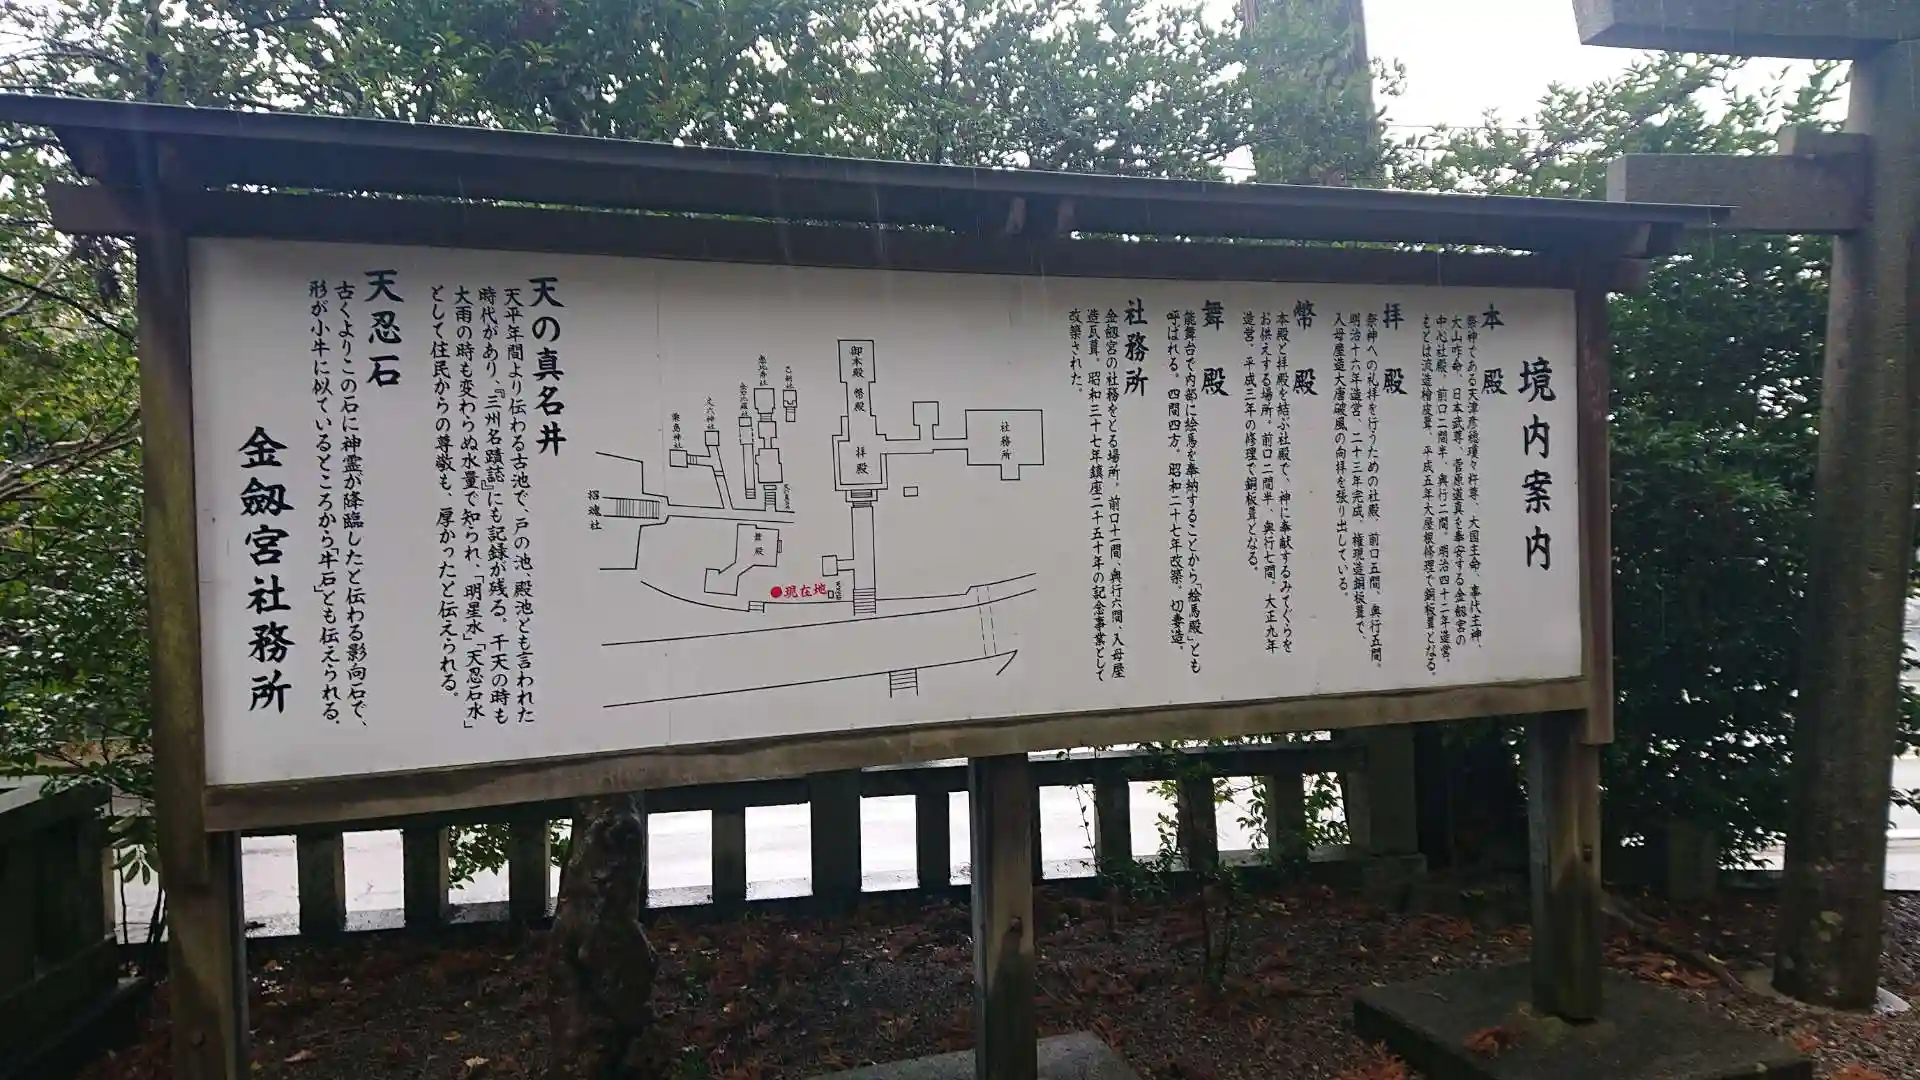 境内案内
本殿
祭神である天津彦穂瓊々杵尊、大国主命、事代主神、
大山咋命、日本武尊、菅原道真を奉安する金劔宮の
中心社殿。前口二間半、奥行二間。明治四十二年造営。
もとは流造檜皮葺、平成五年大屋根修理で銅板葺となる。
拝殿
祭神への礼拝を行うための社殿。前口五間、奥行五間。
明治十六年造営、二十三年完成。権現造銅板葺で、
入母屋造大唐破風の向拝を張り出している。
幣殿
本殿と拝殿を結ぶ社殿で、神に奉献するみてぐらを
お供えする場所。前口二間半、奥行七間。大正九年
造営。平成三年の修理で銅板葺となる。
舞殿
能舞台で内部に絵馬を奉納することから「絵馬殿」とも
呼ばれる。四間四方。昭和二十七年改築。切妻造。
社務所
金劔宮の社務をとる場所。前口十一間、奥行六間、入母屋
造瓦葺。昭和三十七年鎮座二千五十年の記念事業として
改築された。
社務所
御本殿
幣殿
拝殿
乙剣社
恵比寿社
金刀比羅社
丈六神社
粟島神社
招魂社
舞殿
現在地
天の真名井
天平年間より伝わる古池で、戸の池、殿池とも言われた
時代があり、『三州名蹟誌』にも記録が残る。干天の時も
大雨の時も変わらぬ水量で知られ、「明星水」「天忍石水」
として住民からの尊敬も、厚かったと伝えられる。
天忍石
古くよりこの石に神霊が降臨したと伝わる影向石で、
形が小牛に似ているところから「牛石」とも伝えられる。
金劔宮社務所